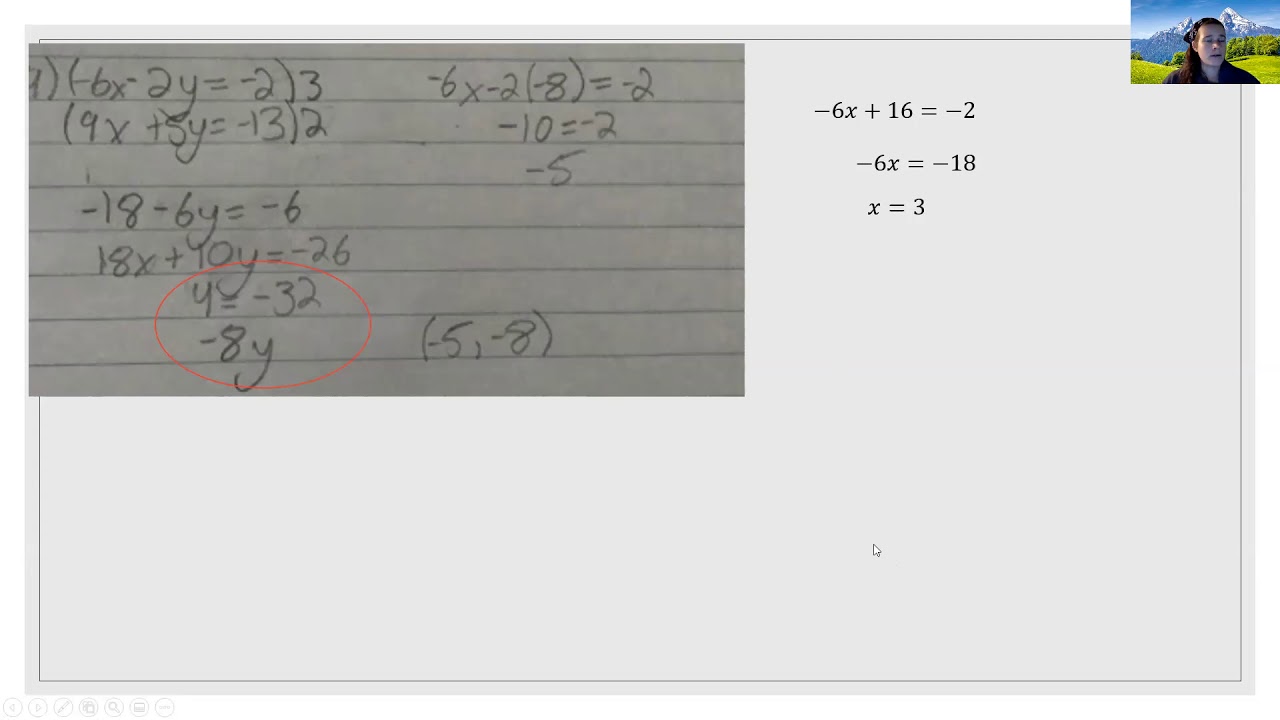 1) (-6x-2y=-2)3
(9x+5y=-13)2
-18-6y=-6
18x+10y=-26
4=-32
-8y
-6x-2(-8)=-2
-10=-2
-5
(-5,-8)
−6x + 16 = −2
−6x = −18
x = 3